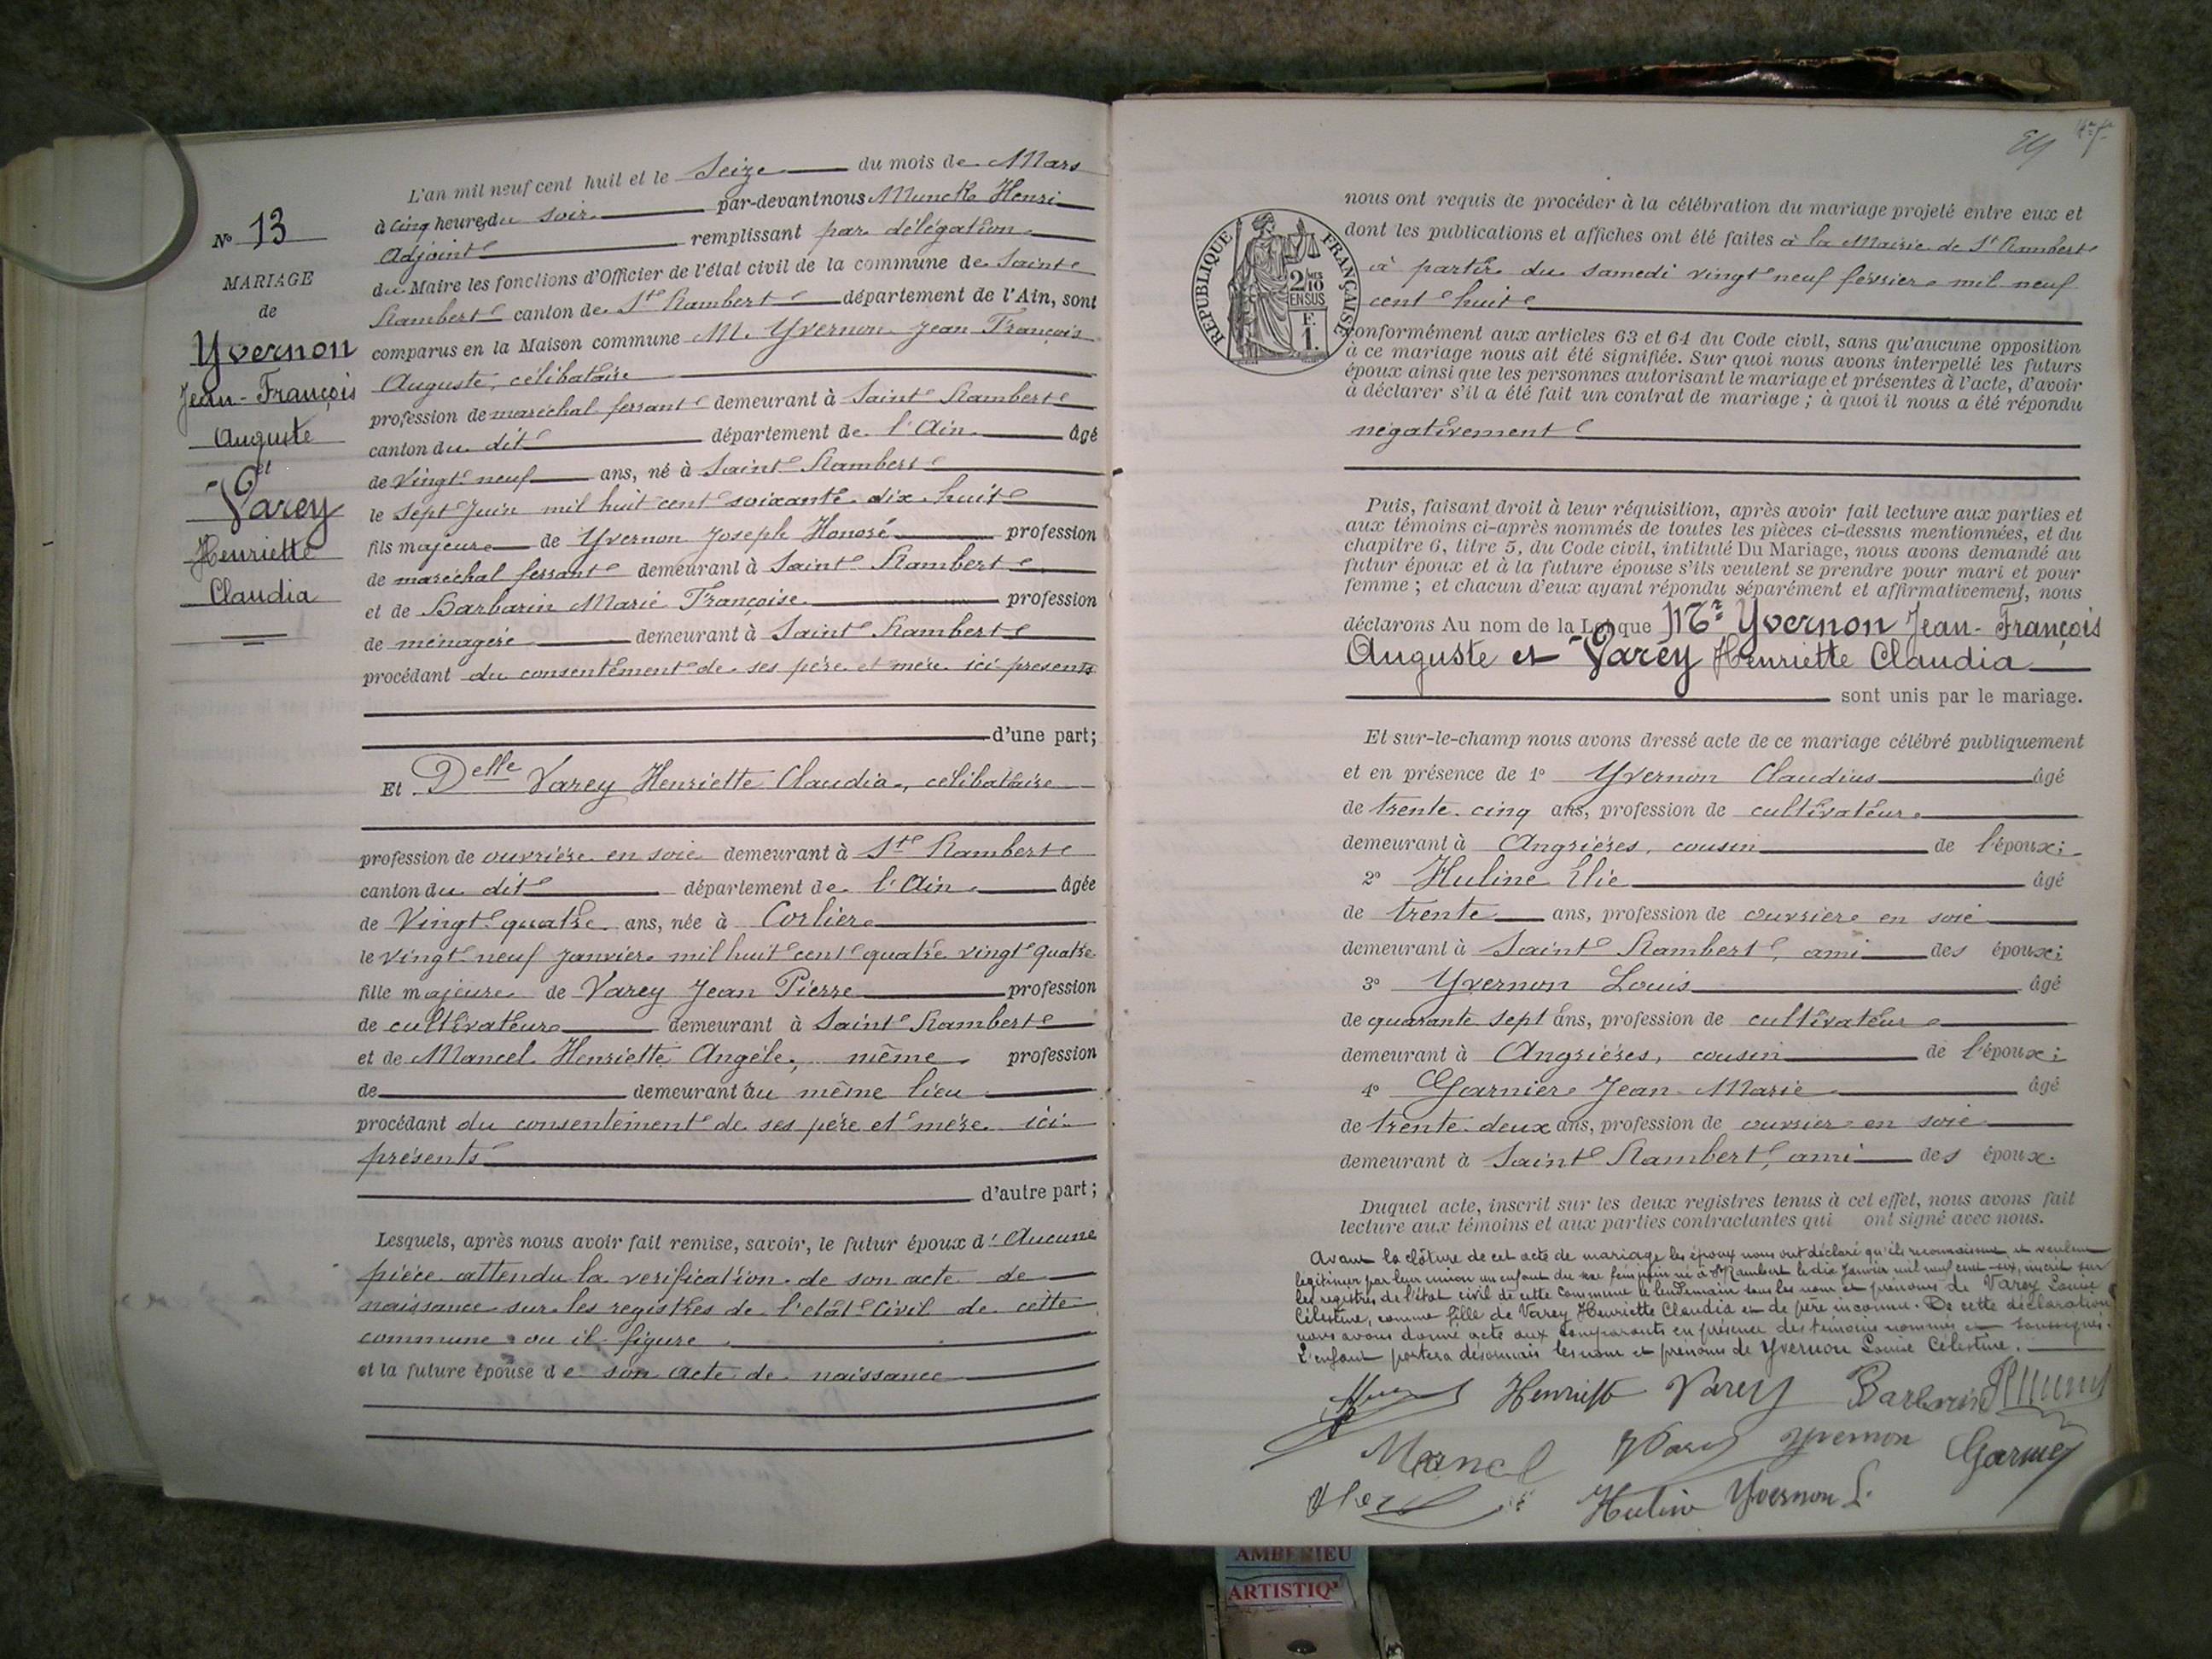 L'an mil neuf cent huit et le Seize du mois de Mars
à cinq heures du soir par-devant nous Munck Henri
Adjoint remplissant par délégation
du Maire les fonctions d'Officier de l'état civil de la commune de Saint
Rambert canton de St Rambert département de l'Ain, sont
comparus en la Maison commune M. Yvernon Jean François
Auguste, célibataire
profession de maréchal ferrant demeurant à Saint Rambert
canton du dit département de l'Ain âgé
de Vingt neuf ans, né à Saint Rambert
le Sept Juin mil huit cent soixante dix huit
fils majeur de Yvernon Joseph Honoré profession
de maréchal ferrant demeurant à Saint Rambert
et de Barbarin Marie Françoise profession
de ménagère demeurant à Saint Rambert
procédant du consentement de ses père et mère ici présents
d'une part;
Et Delle Varey Henriette Claudia, célibataire
profession de ouvrière en soie demeurant à St Rambert
canton du dit département de l'Ain âgée
de Vingt quatre ans, née à Corlier
le vingt neuf Janvier mil huit cent quatre vingt quatre
fille majeure de Varey Jean Pierre profession
de cultivateur demeurant à Saint Rambert
et de Mancel Henriette Angèle, même profession
de demeurant au même lieu
procédant du consentement de ses père et mère ici
présents
d'autre part;
Lesquels, après nous avoir fait remise, savoir, le futur époux d'Aucune
pièce attendu la verification de son acte de
naissance sur les registres de l'etat Civil de cette
commune ou il figure
et la future épouse de son acte de naissance
No 13
MARIAGE
de
Yvernon
Jean-François
Auguste
et
Varey
Henriette
Claudia
RÉPUBLIQUE FRANÇAISE
2/10 EN SUS
F. 1.
nous ont requis de procéder à la célébration du mariage projeté entre eux et
dont les publications et affiches ont été faites à la Mairie de St Rambert
à partir du samedi vingt neuf février mil neuf
cent huit
conformément aux articles 63 et 64 du Code civil, sans qu'aucune opposition
à ce mariage nous ait été signifiée. Sur quoi nous avons interpellé les futurs
époux ainsi que les personnes autorisant le mariage et présentes à l'acte, d'avoir
à déclarer s'il a été fait un contrat de mariage; à quoi il nous a été répondu
négativement
Puis, faisant droit à leur réquisition, après avoir fait lecture aux parties et
aux témoins ci-après nommés de toutes les pièces ci-dessus mentionnées, et du
chapitre 6, titre 5, du Code civil, intitulé Du Mariage, nous avons demandé au
futur époux et à la future épouse s'ils veulent se prendre pour mari et pour
femme; et chacun d'eux ayant répondu séparément et affirmativement, nous
déclarons Au nom de la Loi que Mr Yvernon Jean-François
Auguste et Varey Henriette Claudia
sont unis par le mariage.
Et sur-le-champ nous avons dressé acte de ce mariage célébré publiquement
et en présence de 1° Yvernon Claudius âgé
de trente cinq ans, profession de cultivateur
demeurant à Angrières, cousin de l'époux;
2° Huline Elie âgé
de trente ans, profession de ouvrier en soie
demeurant à Saint Rambert, ami des époux;
3° Yvernon Louis âgé
de quarante sept ans, profession de cultivateur
demeurant à Angrières, cousin de l'époux;
4° Garnier Jean Marie âgé
de trente deux ans, profession de ouvrier en soie
demeurant à Saint Rambert, ami des époux.
Duquel acte, inscrit sur les deux registres tenus à cet effet, nous avons fait
lecture aux témoins et aux parties contractantes qui ont signé avec nous.
Avant la clôture de cet acte de mariage les époux nous ont déclaré qu'ils reconnaissent et veulent
légitimer par leur union un enfant du sexe féminin né à St Rambert le dix Janvier mil neuf cent six, inscrit sur
les registres de l'état civil de cette Commune le lendemain sous les nom et prénoms de Varey Louise
Célestine, comme fille de Varey Henriette Claudia et de père inconnu. De cette déclaration
nous avons donné acte aux comparants en présence des témoins nommés et soussignés.
L'enfant portera désormais les nom et prénoms de Yvernon Louise Célestine.
Henriette Varey Barbarin
Mancel Varey Yvernon Garnier
Hulin Yvernon L.
AMBERIEU
ARTISTIQ'